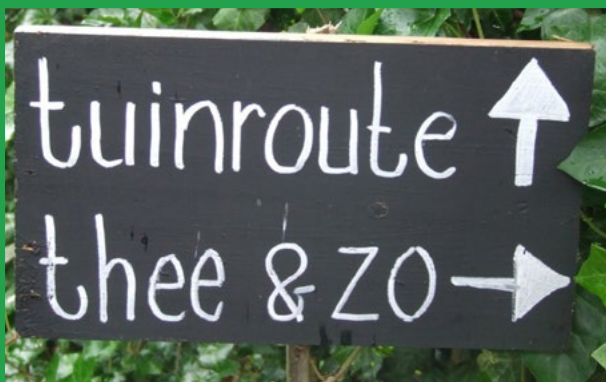 tuinroute ↑
thee & zo →